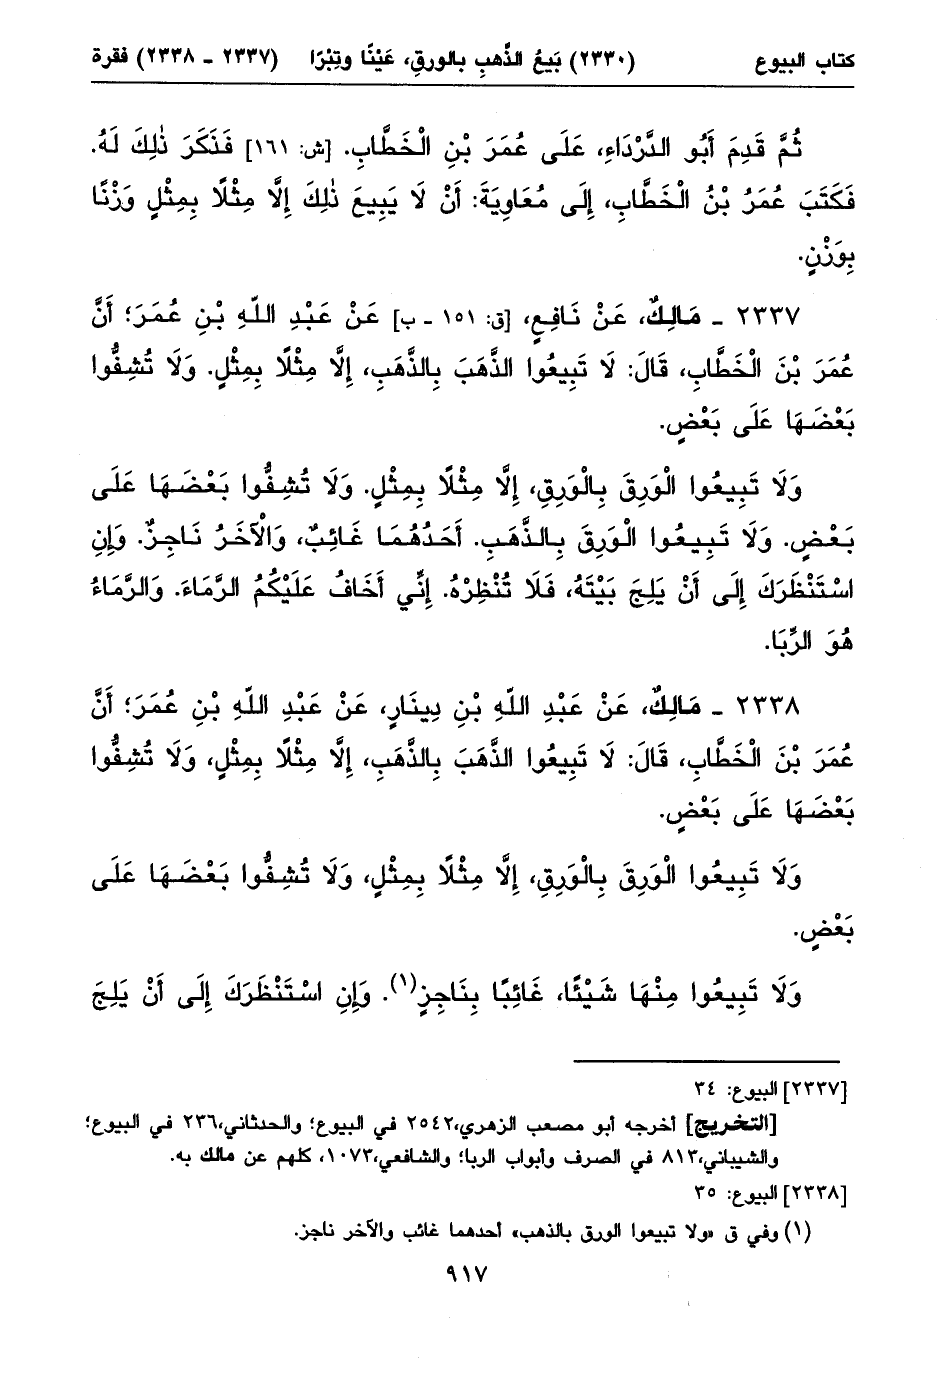 كتاب البيوع (٢٣٣٠) بَيعُ الذَّهبِ بالورقِ، عَيْنًا وتِبْرًا (٢٣٣٧ ـ ٢٣٣٨) فقرة
ثُمَّ قَدِمَ أَبُو الدَّرْدَاءِ، عَلَى عُمَرَ بْنِ الْخَطَّابِ. [ش: ١٦١] فَذَكَرَ ذٰلِكَ لَهُ.
فَكَتَبَ عُمَرُ بْنُ الْخَطَّابِ، إِلَى مُعَاوِيَةَ: أَنْ لَا يَبِيعَ ذٰلِكَ إِلَّا مِثْلًا بِمِثْلٍ وَزْنًا
بِوَزْنٍ.
٢٣٣٧ ـ مَالِكٌ، عَنْ نَافِعٍ، [ق: ١٥١ ـ ب] عَنْ عَبْدِ اللّهِ بْنِ عُمَرَ؛ أَنَّ
عُمَرَ بْنَ الْخَطَّابِ، قَالَ: لَا تَبِيعُوا الذَّهَبَ بِالذَّهَبِ، إِلَّا مِثْلًا بِمِثْلٍ. وَلَا تُشِفُّوا
بَعْضَهَا عَلَى بَعْضٍ.
وَلَا تَبِيعُوا الْوَرِقَ بِالْوَرِقِ، إِلَّا مِثْلًا بِمِثْلٍ. وَلَا تُشِفُّوا بَعْضَهَا عَلَى
بَعْضٍ. وَلَا تَبِيعُوا الْوَرِقَ بِالذَّهَبِ. أَحَدُهُمَا غَائِبٌ، وَالْآخَرُ نَاجِزٌ. وَإِنِ
اسْتَنْظَرَكَ إِلَى أَنْ يَلِجَ بَيْتَهُ، فَلَا تُنْظِرْهُ. إِنِّي أَخَافُ عَلَيْكُمُ الرَّمَاءَ. وَالرَّمَاءُ
هُوَ الرِّبَا.
٢٣٣٨ ـ مَالِكٌ، عَنْ عَبْدِ اللّهِ بْنِ دِينَارٍ، عَنْ عَبْدِ اللّهِ بْنِ عُمَرَ؛ أَنَّ
عُمَرَ بْنَ الْخَطَّابِ، قَالَ: لَا تَبِيعُوا الذَّهَبَ بِالذَّهَبِ، إِلَّا مِثْلًا بِمِثْلٍ، وَلَا تُشِفُّوا
بَعْضَهَا عَلَى بَعْضٍ.
وَلَا تَبِيعُوا الْوَرِقَ بِالْوَرِقِ، إِلَّا مِثْلًا بِمِثْلٍ، وَلَا تُشِفُّوا بَعْضَهَا عَلَى
بَعْضٍ.
وَلَا تَبِيعُوا مِنْهَا شَيْئًا، غَائِبًا بِنَاجِزٍ(١). وَإِنِ اسْتَنْظَرَكَ إِلَى أَنْ يَلِجَ
[٢٣٣٧] البيوع: ٣٤
[التخريج] أخرجه أبو مصعب الزهري،٢٥٤٢ في البيوع؛ والحدثاني،٢٣٦ في البيوع؛
والشيباني،٨١٣ في الصرف وأبواب الربا؛ والشافعي،١٠٧٣، كلهم عن مالك به.
[٢٣٣٨] البيوع: ٣٥
(١) وفي ق «ولا تبيعوا الورق بالذهب» أحدهما غائب والآخر ناجز.
٩١٧